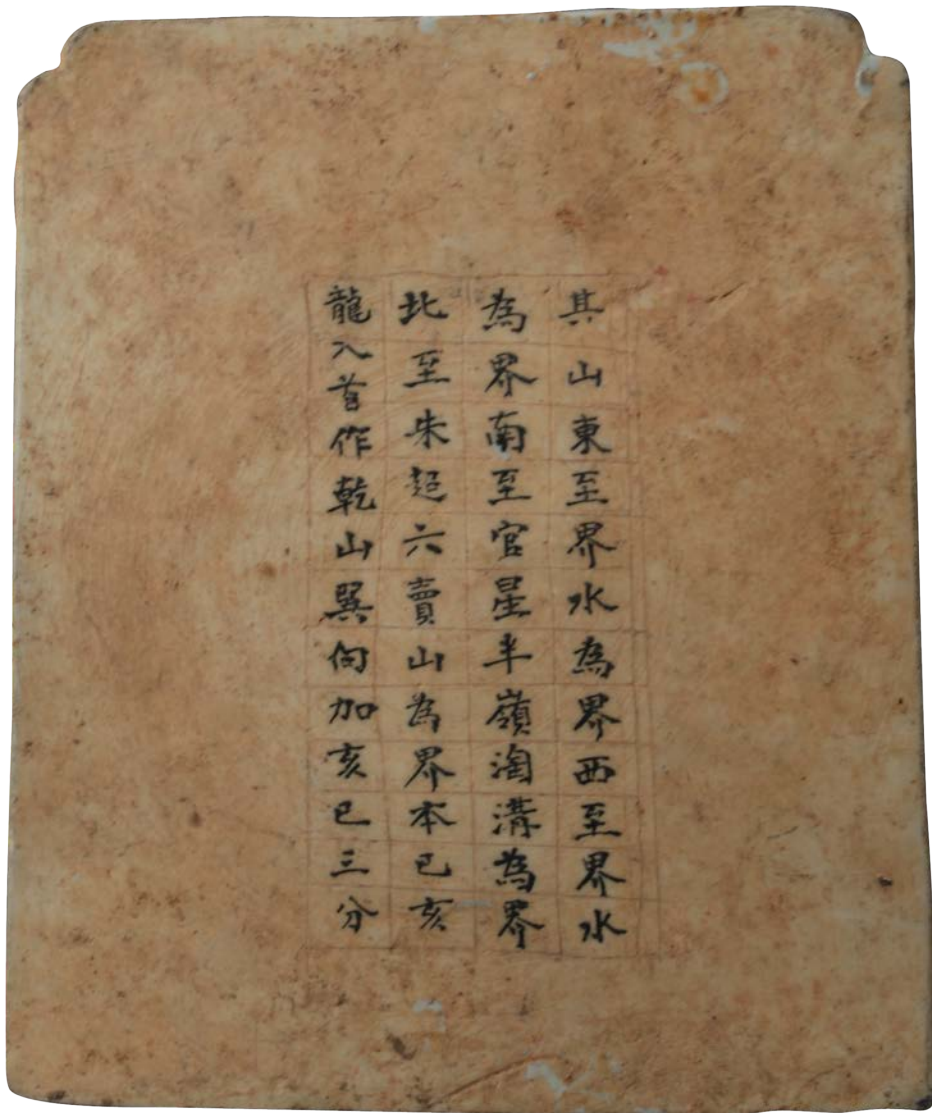 其山東至界水為界西至界水
為界南至官星半嶺淘溝為界
北至朱超六賣山為界本巳亥
龍入首作乾山巽向加亥巳三分